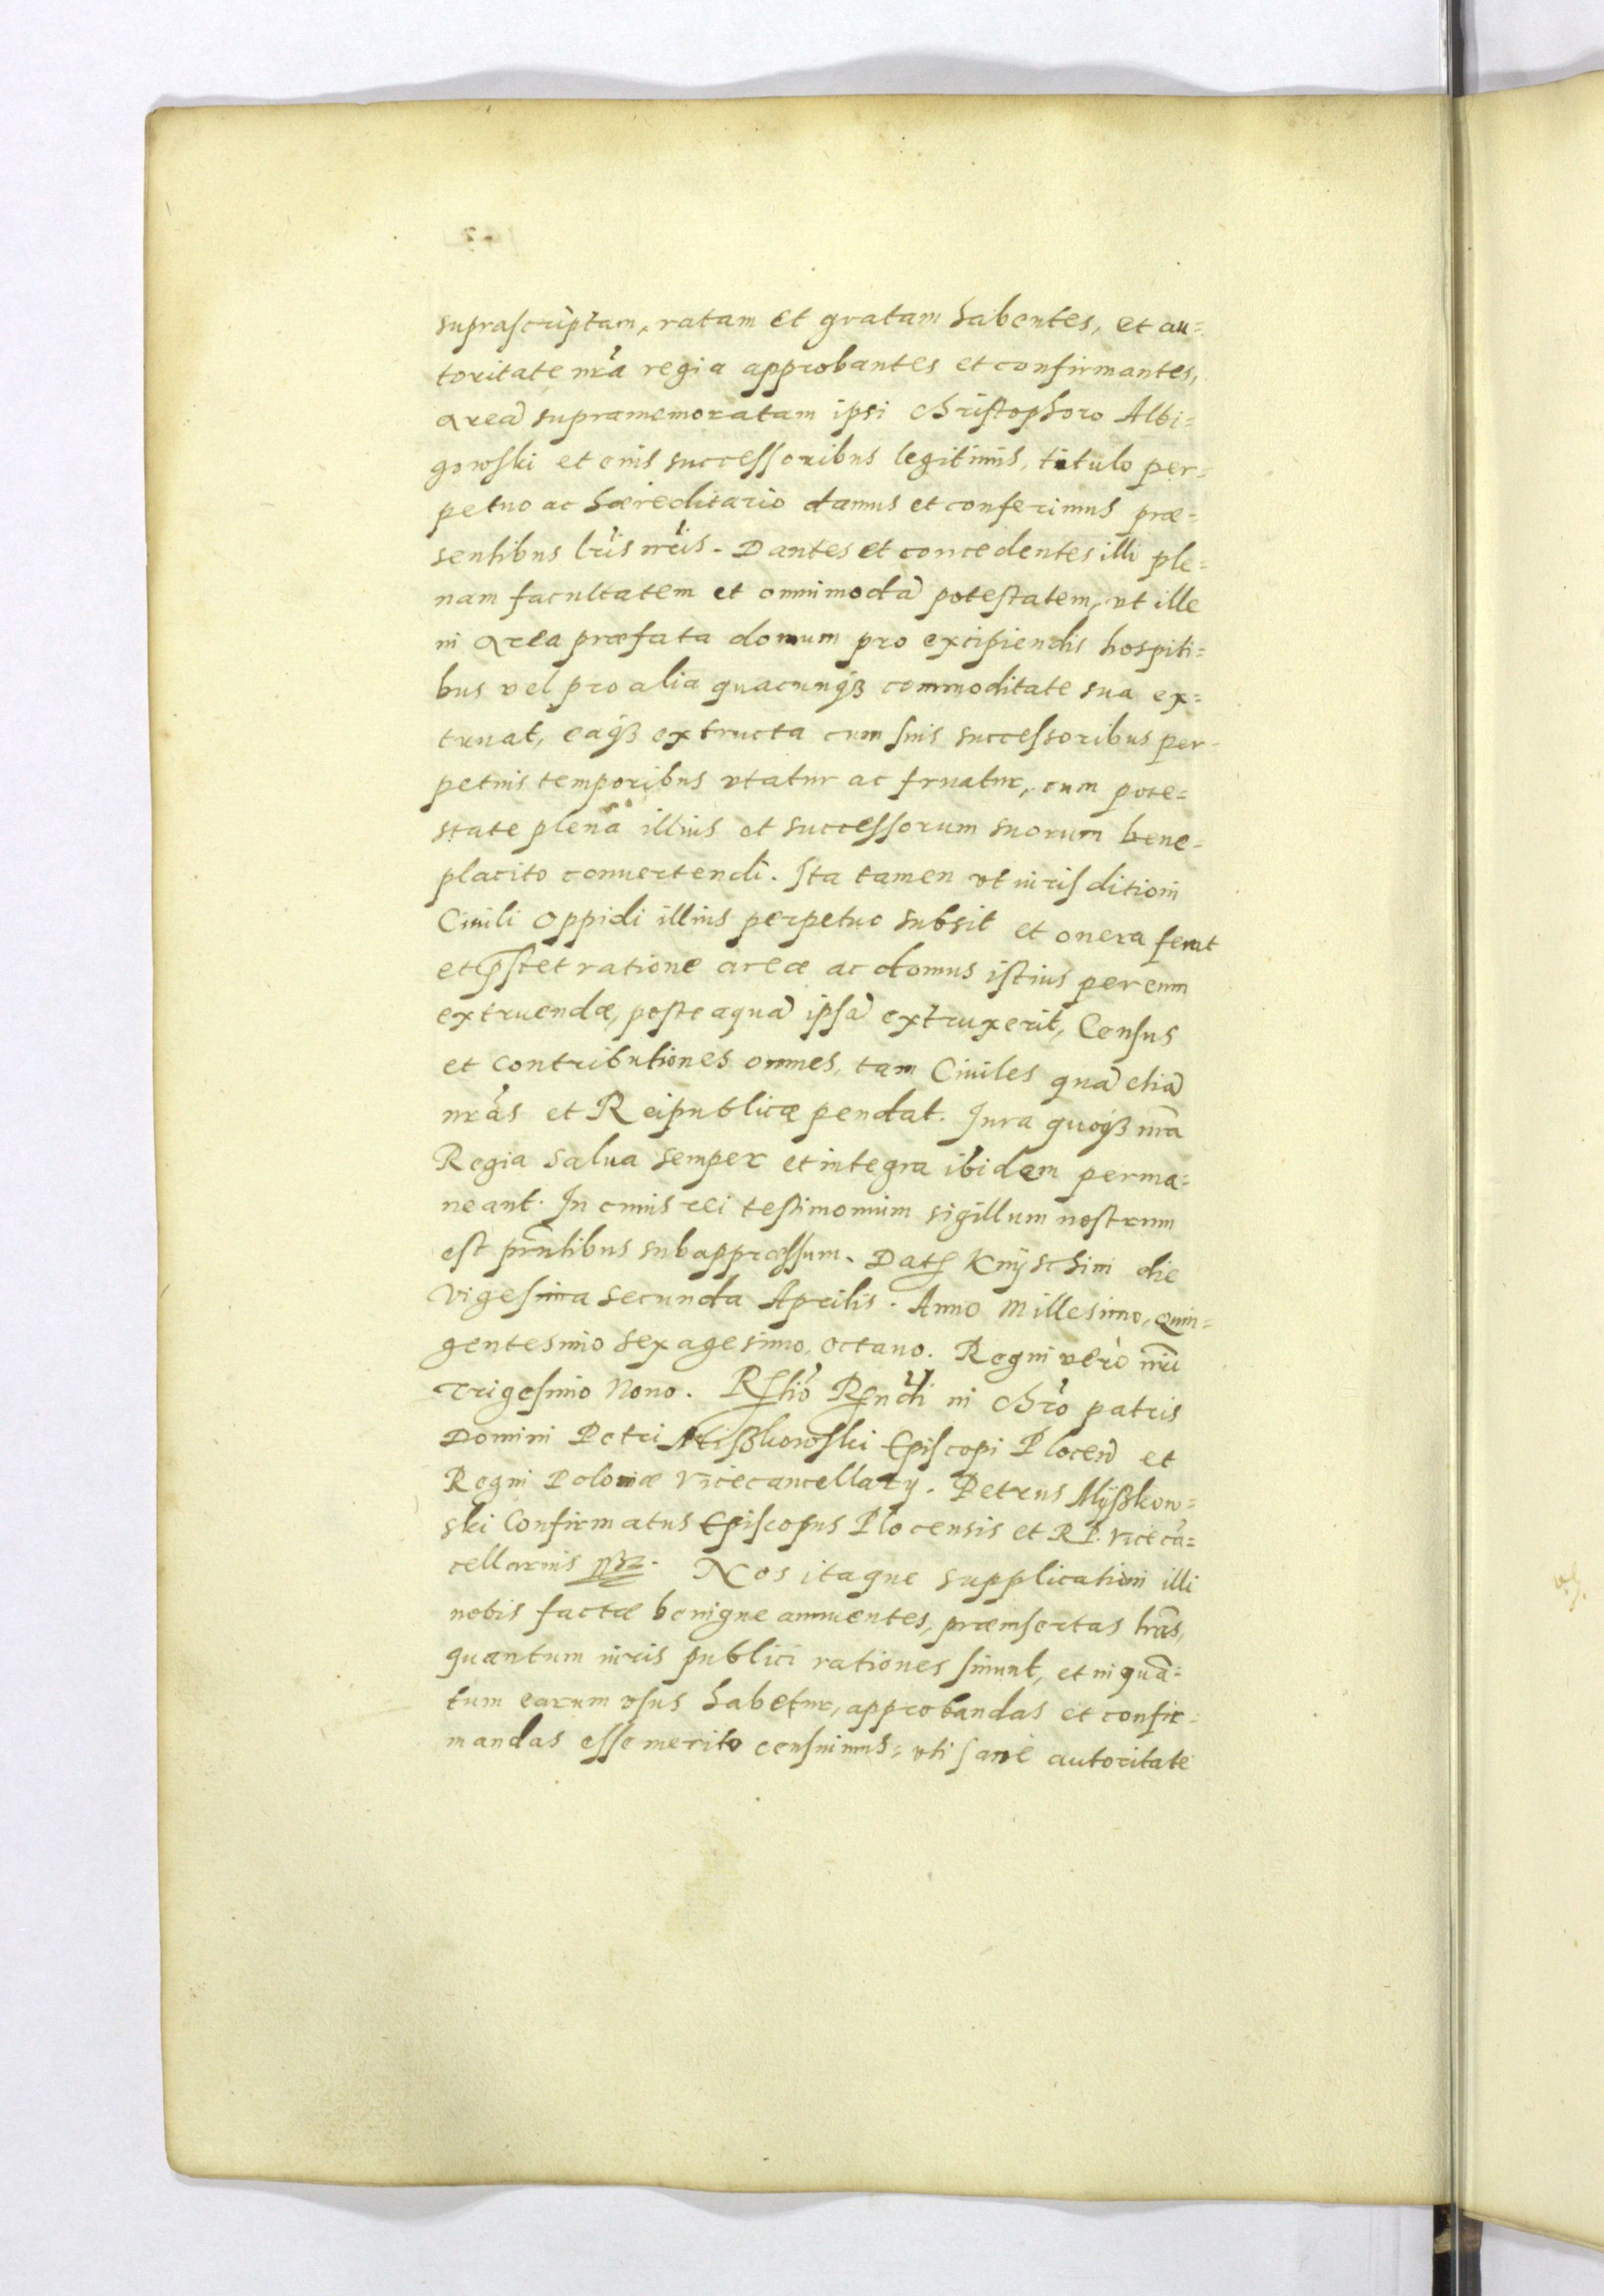 suprascriptam, ratam et gratam habentes, et au=
toritate nr̃a regia approbantes et confirmantes,
areã supramemoratam ipsi Christophoro Albi=
gowski et eius successoribus legitimis, titulo per=
petuo ac hæreditario damus et conferimus præ=
sentibus lr̃is nr̃is. Dantes et concedentes illi ple=
nam facultatem et omnimodã potestatem, vt ille
in area præfata domum pro excipiendis hospiti=
bus vel pro alia quacunq3 commoditate sua ex=
truat, eaq3 extructa cum suis successoribus per=
petuis temporibus vtatur ac fruatur, cum pote=
state plena illius et successorum suorum bene=
placito conuertendi. Ita tamen vt iurisditioni
Ciuili oppidi illius perpetuo subsit et onera ferat
et p̃stet ratione areæ ac domus istius per eum
extruendæ, posteaquã ipsã extruxerit, Census
et contributiones omnes, tam Ciuiles quã etiã
nr̃as et Reipublicæ pendat. Jura quoq3 nr̃a
Regia salua semper et integra ibidem perma=
neant. In cuius rei testimonium sigillum nostrum
est pñtibus subappressum. Dat Knÿschini die
vigesima secunda Aprilis. Anno Millesimo, quin=
gentesimo sexagesimo, octauo. Regni verò nr̃i
Trigesimo Nono. Rltiõ Rñdi in Chrõ patris
Domini Petri Mißkowski Episcopi Plocen̄ et
Regni Poloniæ Vicecancellarÿ. Petrus Mÿßkow=
ski Confirmatus Episcopus Plocensis et R P. vicecã=
cellarius ßß. Nos itaque supplicationi illi
nobis factæ benigne annuentes, præinsertas lr̃as,
quantum iuris publici rationes sinunt, et in quã=
tum earum vsus habetur, approbandas et confir=
mandas esse merito censuimus, vti sane autoritate